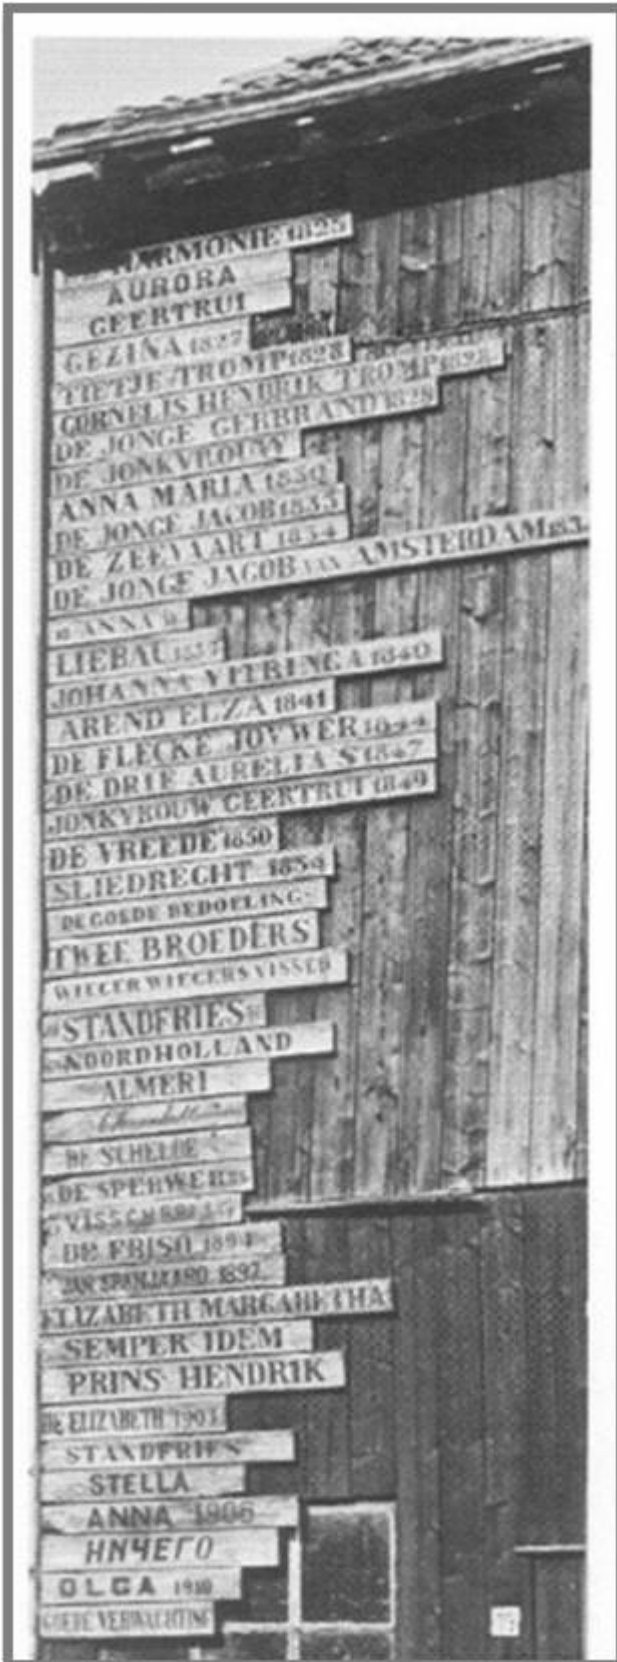 HARMONIE 1825
AURORA
GEERTRUI
GEZINA 1827
TIETJE TROMP 1828
CORNELIS HENDRIK TROMP 1828
DE JONGE GERBRAND 1828
DE JONKVROUW
ANNA MARIA 1830
DE JONGE JACOB 1833
DE ZEEVAART 1834
DE JONGE JACOB VAN AMSTERDAM 183
ANNA
LIEBAU 1837
JOHANNA VITRINGA 1840
AREND ELZA 1841
DE FLECKE JOVWER 1844
DE DRIE AURELIA S 1847
JONKVROUW GEERTRUI 1849
DE VREEDE 1850
SLIEDRECHT 1854
DE GOEDE BEDOELING
TWEE BROEDERS
WIEGER WIEGERS VISSER
STANDFRIES
NOORDHOLLAND
ALMERI
DE SCHELDE
DE SPERWER
DE FRISO 1894
JAN SPANJAARD 1897
ELIZABETH MARGARETHA
SEMPER IDEM
PRINS HENDRIK
DE ELIZABETH 1903
STANDFRIES
STELLA
ANNA 1906
НИЧЕГО
OLGA 1910
GOEDE VERWACHTING